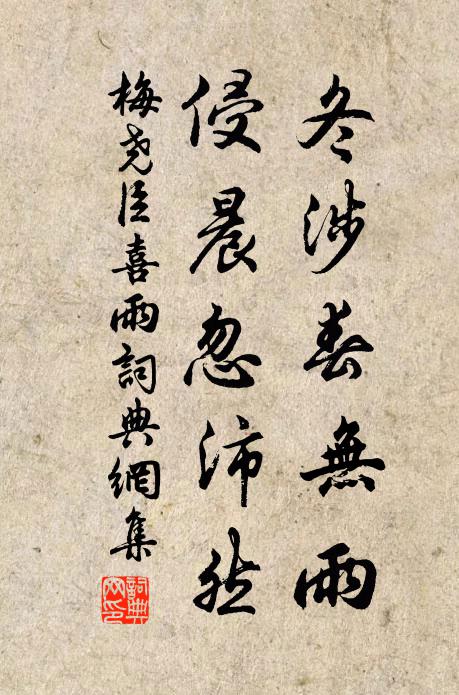 冬涉春無雨
侵晨忽沛然
梅堯臣喜雨詞典網集
詞典網印